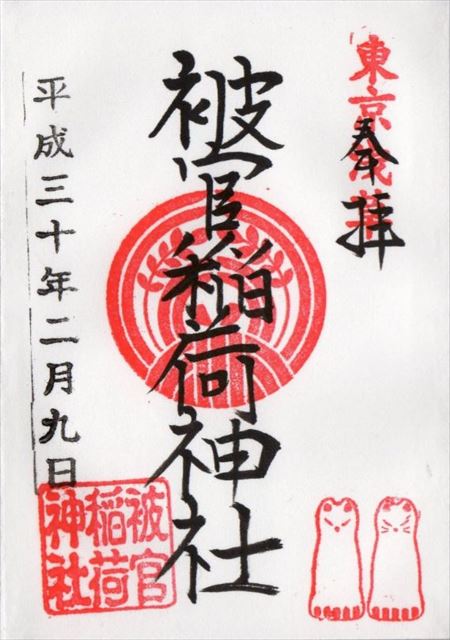 東京浅草
奉拝
被官稲荷神社
平成三十年二月九日
被官
稲荷
神社